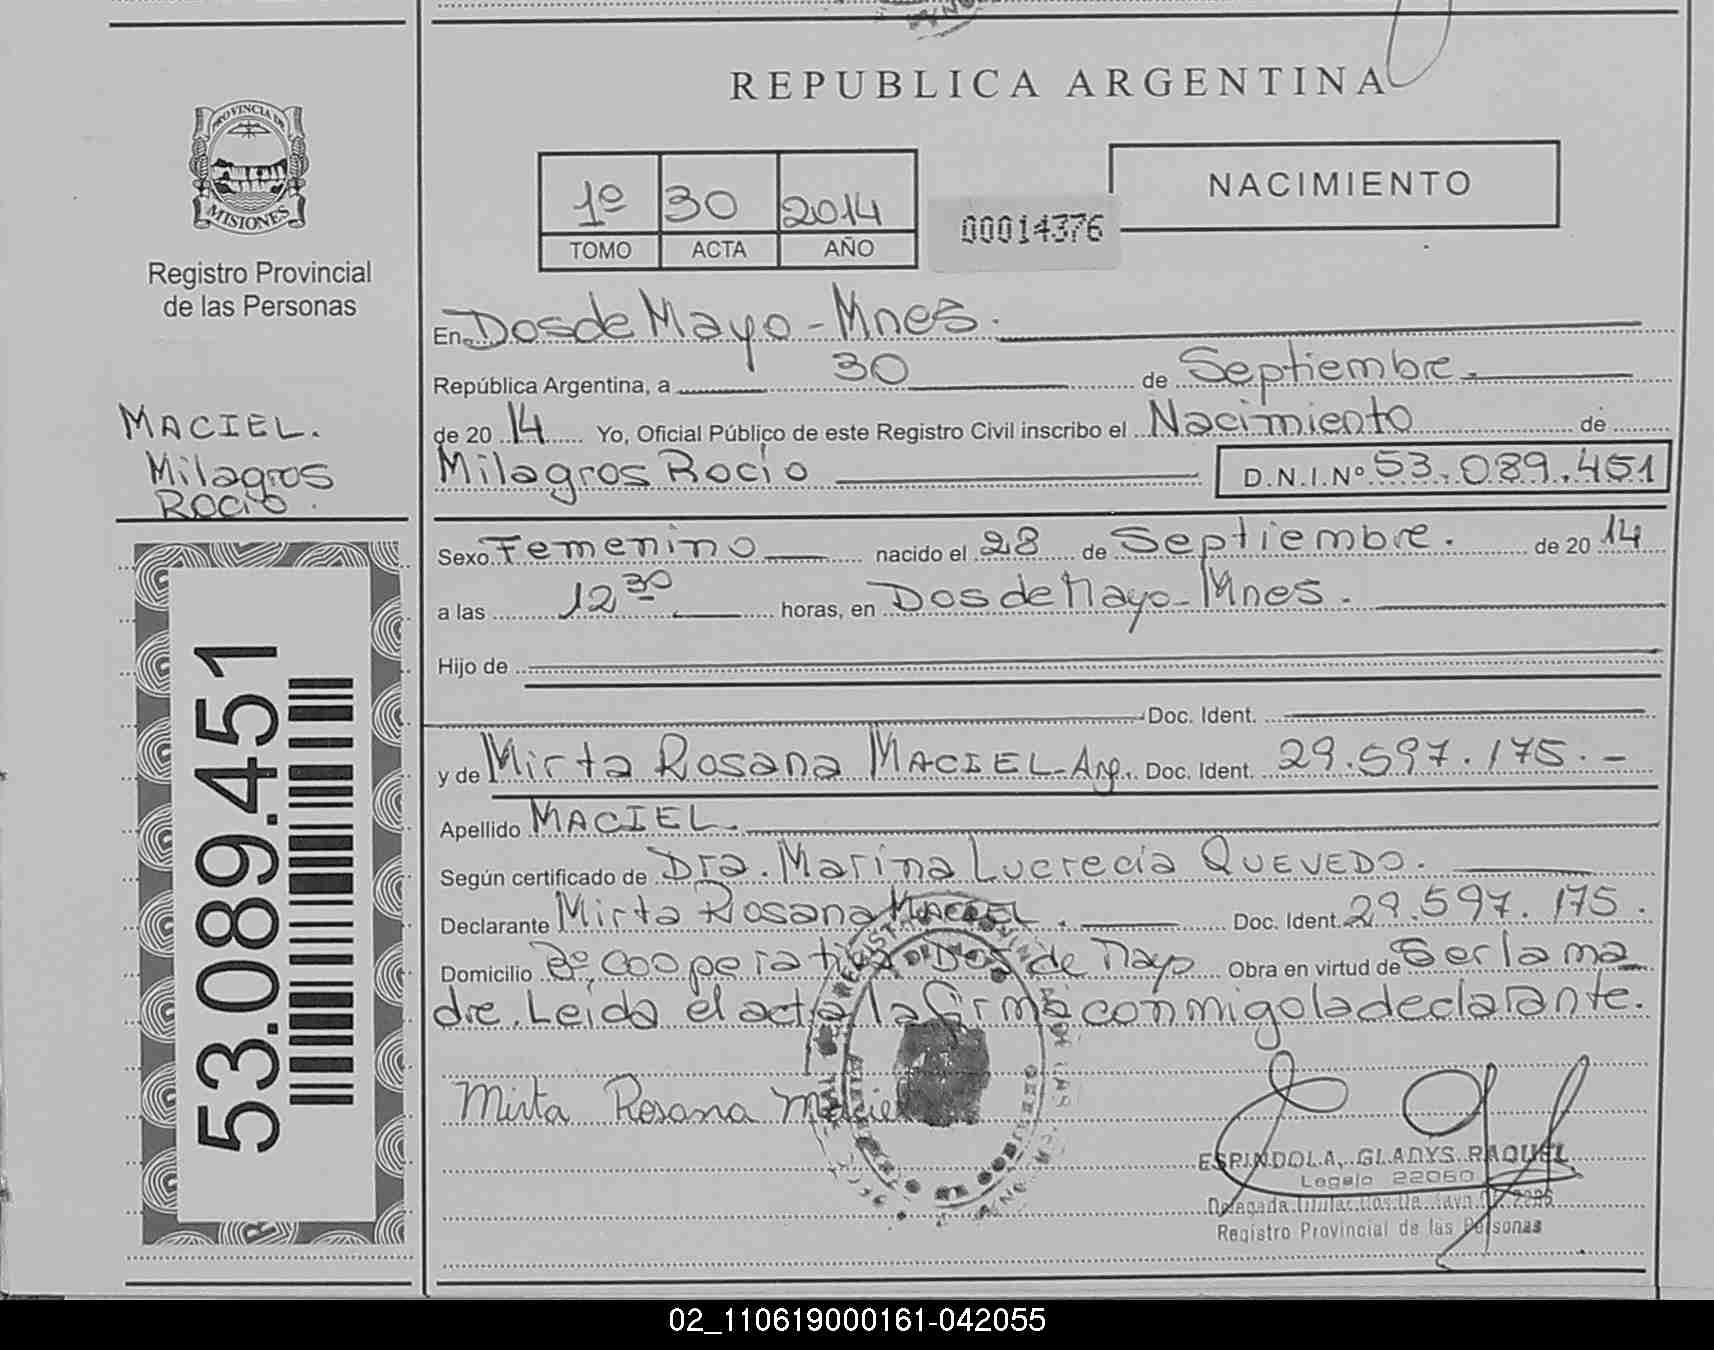 REPUBLICA ARGENTINA
PROVINCIA DE
MISIONES
Registro Provincial
de las Personas
1º 30 2014
TOMO ACTA AÑO
00014376
NACIMIENTO
MACIEL.
Milagros
Rocío.
53.089.451
En Dos de Mayo - Mnes.
República Argentina, a 30 de Septiembre.
de 20 14 Yo, Oficial Público de este Registro Civil inscribo el Nacimiento de
Milagros Rocío D.N.I.Nº 53.089.451
Sexo Femenino nacido el 28 de Septiembre. de 20 14
a las 12 30 horas, en Dos de Mayo - Mnes.
Hijo de
Doc. Ident.
y de Mirta Rosana MACIEL - Arg. Doc. Ident. 29.597.175.-
Apellido MACIEL.
Según certificado de Dra. Marina Lucrecia QUEVEDO.
Declarante Mirta Rosana MACIEL. Doc. Ident. 29.597.175.
Domicilio Bº Cooperativa Dos de Mayo Obra en virtud de Ser la ma
dre. Leída el acta la firma conmigo la declarante.
Mirta Rosana Maciel
ESPINDOLA, GLADYS RAQUEL
Legajo 22060
Delegada Titular Dos De Mayo
Registro Provincial de las Personas
02_110619000161-042055